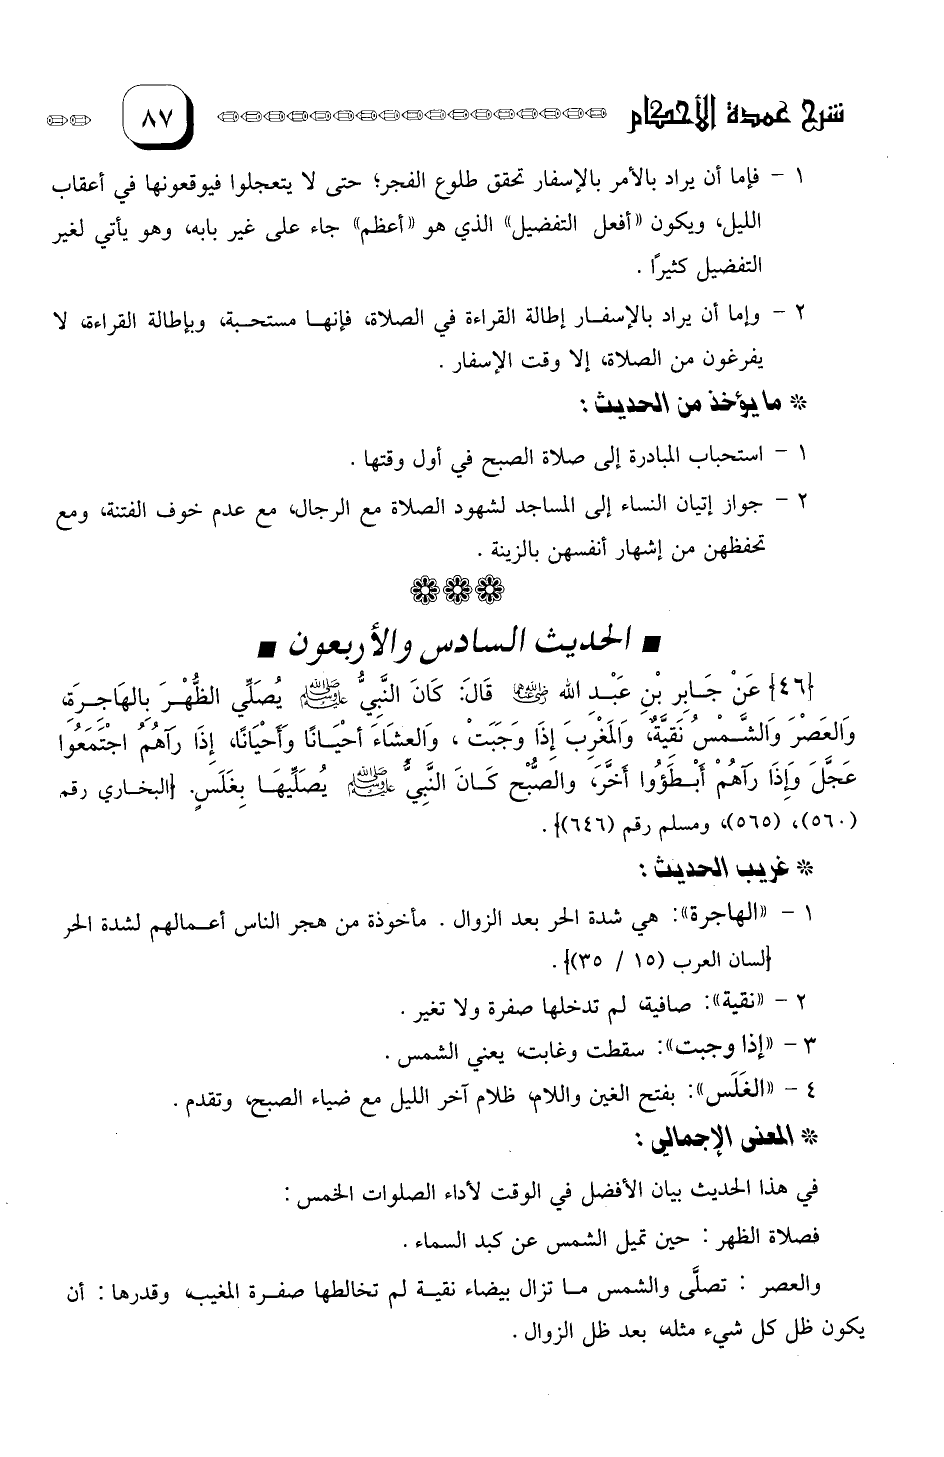 شرح عمدة الأحكام ٨٧
١ - فإما أن يراد بالأمر بالإسفار تحقق طلوع الفجر؛ حتى لا يتعجلوا فيوقعونها في أعقاب
الليل، ويكون «أفعل التفضيل» الذي هو «أعظم» جاء على غير بابه، وهو يأتي لغير
التفضيل كثيرًا .
٢ - وإما أن يراد بالإسفـار إطالة القراءة في الصلاة، فإنهـا مستحـبة، وبإطالة القراءة، لا
يفرغون من الصلاة، إلا وقت الإسفار .
* ما يؤخذ من الحديث :
١ - استحباب المبادرة إلى صلاة الصبح في أول وقتها .
٢ - جواز إتيان النساء إلى المساجد لشهود الصلاة مع الرجال، مع عدم خوف الفتنة، ومع
تحفظهن من إشهار أنفسهن بالزينة .
■ الحديث السادس والأربعون ■
{٤٦} عَنْ جَـابِرِ بْنِ عَبْـدِ الله رضي الله عنهما قَالَ: كَانَ النَّبِيُّ ﷺ يُصَلِّي الظُّهْـرَ بِالهَاجِـرَةِ،
وَالعَصْرَ وَالشَّـمْسُ نَقِيَّةٌ، وَالمَغْرِبَ إِذَا وَجَبَتْ ، وَالعِشَاءَ أَحْيَـانًا وَأَحْيَانًا، إِذَا رَآهُمُ اجْتَمَعُوا
عَجَّلَ وَإِذَا رَآهُمْ أَبْـطَؤُوا أَخَّرَ، والصُّبْح كَـانَ النَّبِيُّ ﷺ يُصَلِّيهَـا بِغَلَسٍ. {البخاري رقم
(٥٦٠)، (٥٦٥)، ومسلم رقم (٦٤٦)} .
* غريب الحديث :
١ - «الهاجرة»: هي شدة الحر بعد الزوال . مأخوذة من هجر الناس أعـمالهم لشدة الحر
{لسان العرب (١٥ / ٣٥)} .
٢ - «نقية»: صافية، لم تدخلها صفرة ولا تغير .
٣ - «إذا وجبت»: سقطت وغابت، يعني الشمس .
٤ - «الغَلَس»: بفتح الغين واللام، ظلام آخر الليل مع ضياء الصبح، وتقدم .
* المعنى الإجمالي :
في هذا الحديث بيان الأفضل في الوقت لأداء الصلوات الخمس :
فصلاة الظهر : حين تميل الشمس عن كبد السماء .
والعصر : تصلَّى والشمس مـا تزال بيضاء نقيـة لم تخالطها صفـرة المغيب، وقدرها : أن
يكون ظل كل شيء مثله، بعد ظل الزوال .